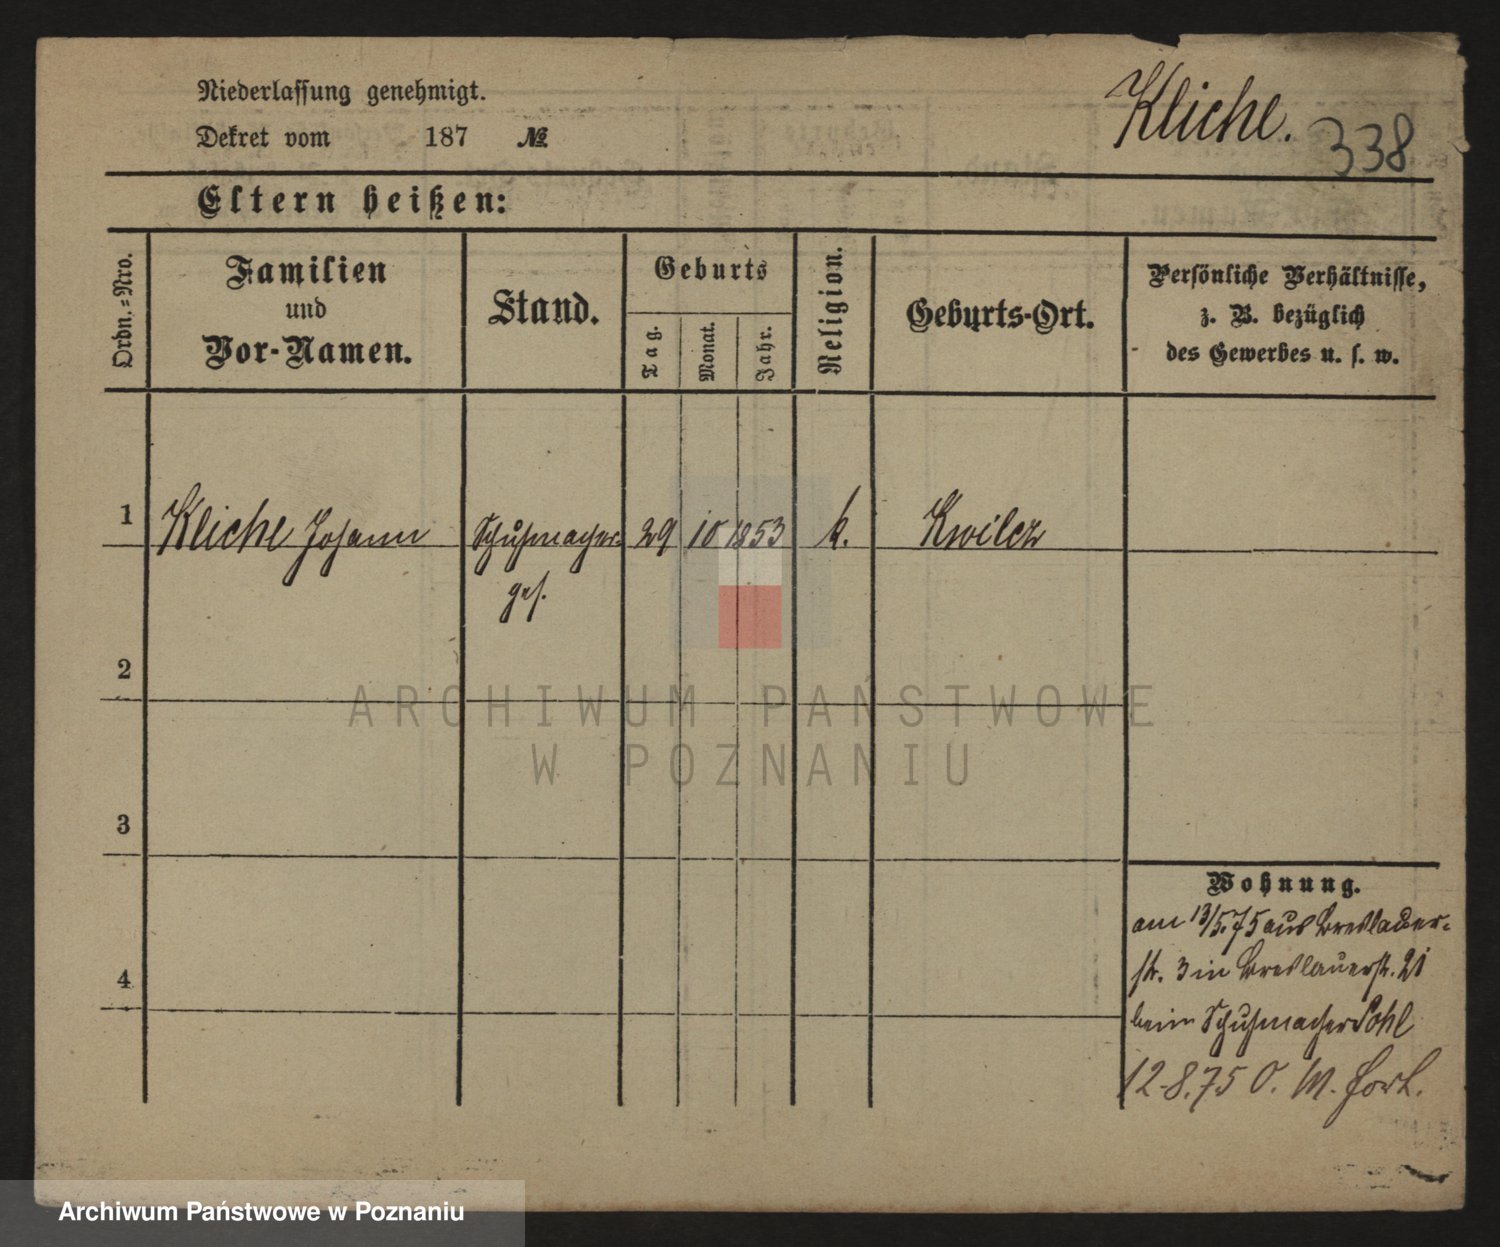 Niederlassung genehmigt.
Dekret vom 187 №
Kliche.
338
Eltern heißen:
Ordn.=Nro.
Familien
und
Vor-Namen.
Stand.
Geburts
Tag.
Monat.
Jahr.
Religion.
Geburts-Ort.
Persönliche Verhältnisse,
z. B. bezüglich
des Gewerbes u. s. w.
1 Kliche Johann Schuhmacher- 29 10 1853 k. Kwilcz
ges.
2
ARCHIWUM PAŃSTWOWE
W POZNANIU
3
Wohnung.
am 13/5.75 aus Breslauer-
str. 3 in Breslauerstr. 21
4
beim Schuhmacher Pohl
12.8.75 O. M. fort.
Archiwum Państwowe w Poznaniu